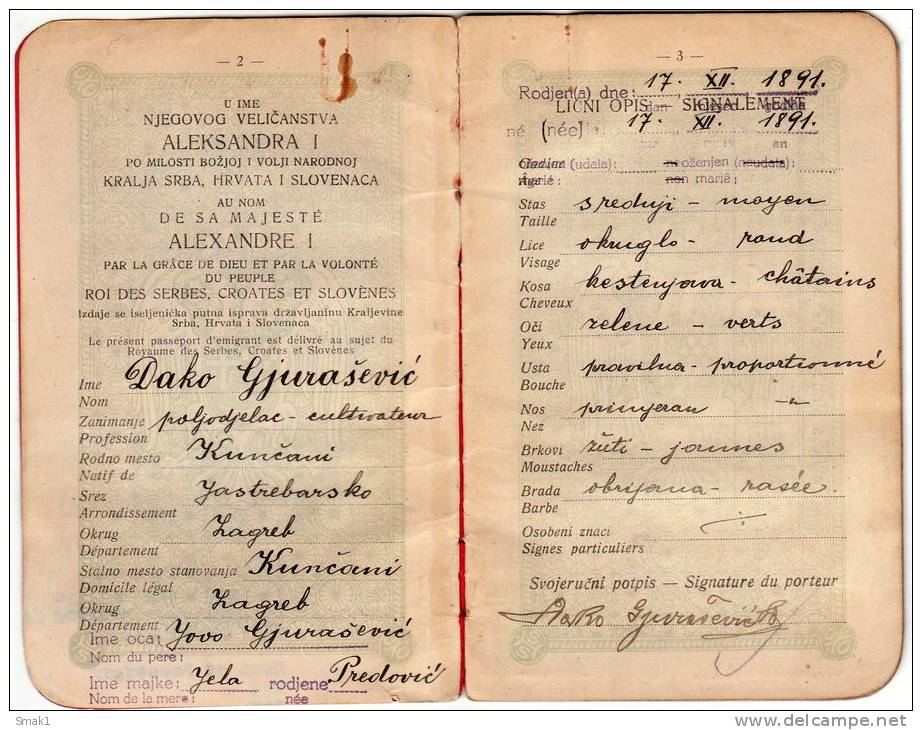 — 2 —
U IME
NJEGOVOG VELIČANSTVA
ALEKSANDRA I
PO MILOSTI BOŽJOJ I VOLJI NARODNOJ
KRALJA SRBA, HRVATA I SLOVENACA
AU NOM
DE SA MAJESTÉ
ALEXANDRE I
PAR LA GRÂCE DE DIEU ET PAR LA VOLONTÉ
DU PEUPLE
ROI DES SERBES, CROATES ET SLOVÈNES
Izdaje se iseljenička putna isprava državljaninu Kraljevine
Srba, Hrvata i Slovenaca
Le présent passeport d'emigrant est délivré au sujet du
Royaume des Serbes, Croates et Slovènes
Ime Dako Gjurašević
Nom
Zanimanje poljodjelac - cultivateur
Profession
Rodno mesto Kunčani
Natif de
Srez Jastrebarsko
Arrondissement
Okrug Zagreb
Département
Stalno mesto stanovanja Kunčani
Domicile légal
Okrug Zagreb
Département
Ime oca: Jovo Gjurašević
Nom du pere:
Ime majke: Jela rodjene Predović
Nom de la mere: née
— 3 —
Rodjen(a) dne: 17. XII. 1891.
LIČNI OPIS — SIGNALEMENT
dan godina
né (née) le 17. XII. 1891.
an
Godine (udata): neoženjen (neudata):
Âge non marié:
Stas srednji - moyen
Taille
Lice okruglo - rond
Visage
Kosa kestenjava - châtains
Cheveux
Oči zelene - verts
Yeux
Usta pravilna - proportionné
Bouche
Nos primjeran - "
Nez
Brkovi žuti - jaunes
Moustaches
Brada obrijana - rasée
Barbe
Osobeni znaci ÷
Signes particuliers
Svojeručni potpis — Signature du porteur
Dako Gjurašević
Smak1
www.delcampe.net